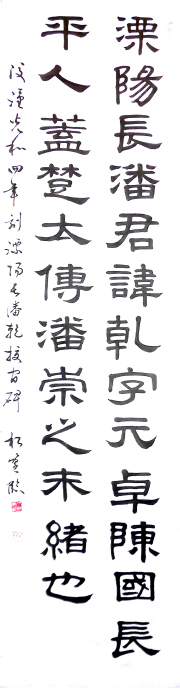 溧陽長潘君諱乹字元卓陳國長
平人蓋楚太傅潘崇之末緒也
漢光和四年刻溧陽長潘乾校官碑 臨